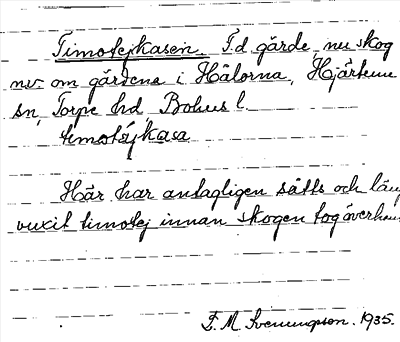 Timotejkasen. F.d gärde, nu skog
nv. om gårdena i Hälorna, Hjärtum
sn, Torpe hd, Bohus l.
timotejkasa
Här har antagligen såtts och läng
vuxit timotej innan skogen tog överhan
F. M. Svenungson. 1935.